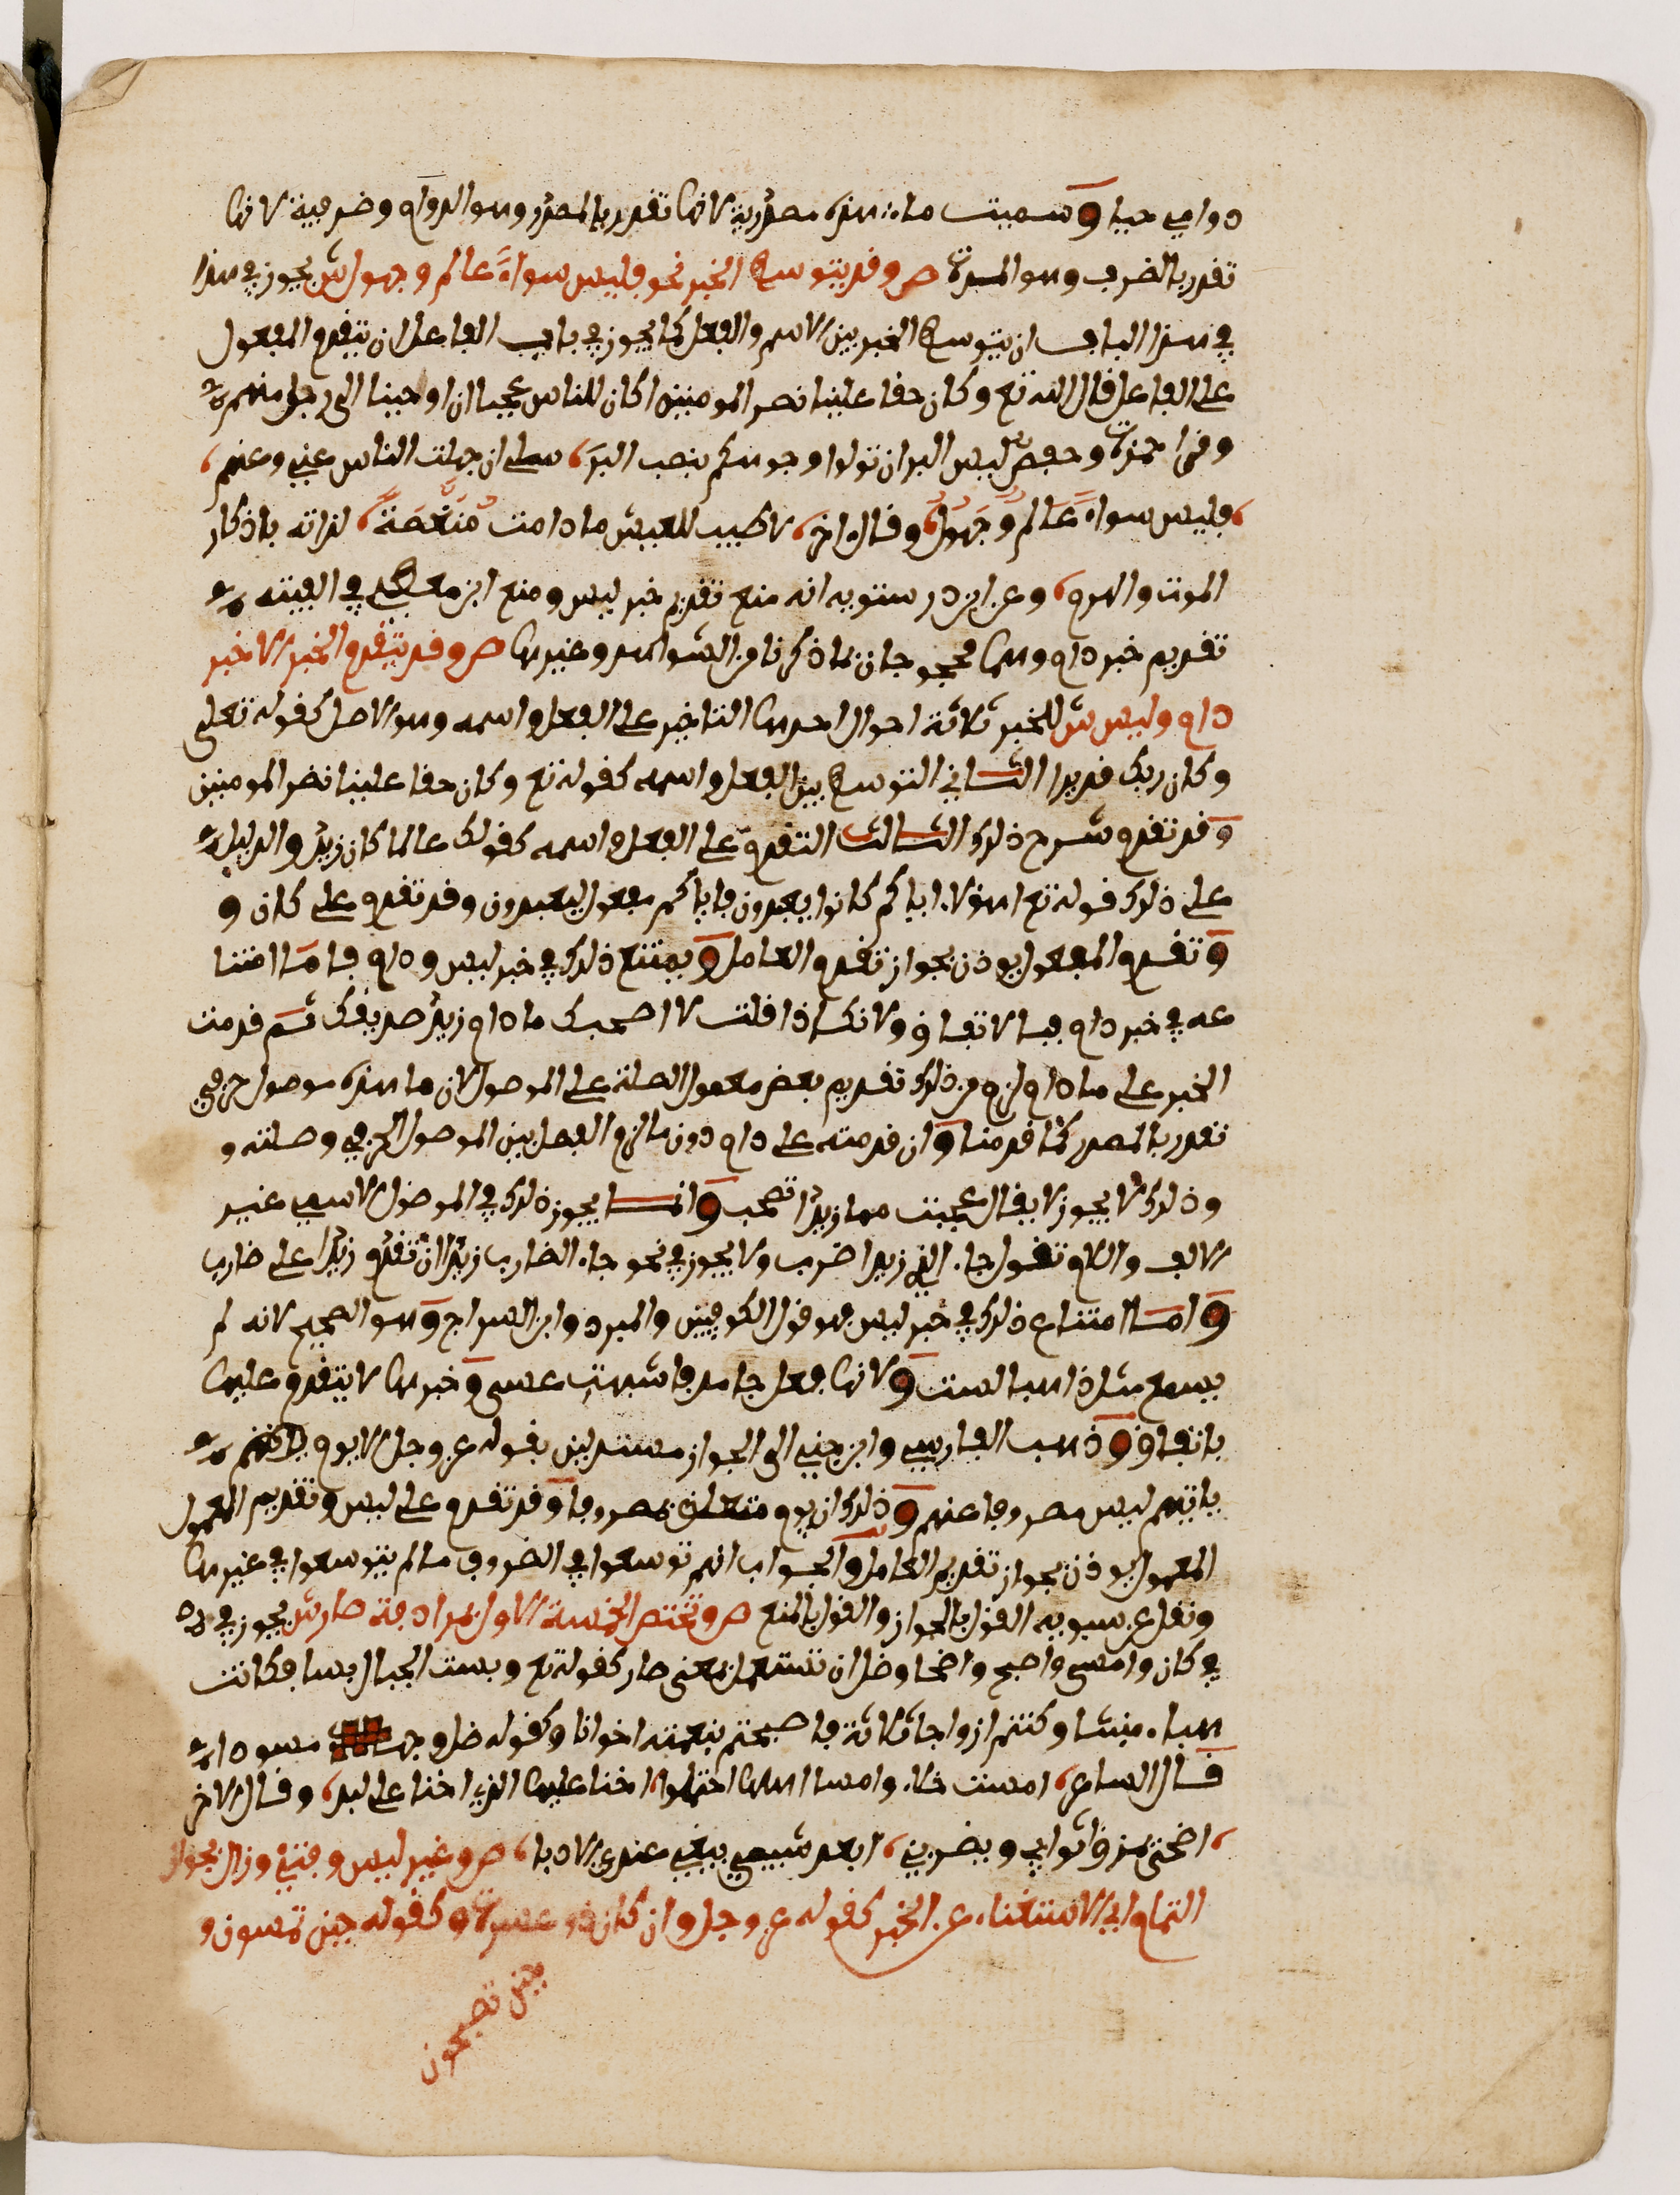 دوامي حيا وسميت ما هذه مصدرية لانها تقدر بالمصدر وهو الدوام وظرفية لانها
تقدر بالظرف وهو المدة ص وقد يتوسط الخبر نحو فليس سواء عالم وجهول ش يجوز في هذا
في هذا الباب ان يتوسط الخبر بين الاسم والفعل كما يجوز في باب الفاعل ان يتقدم المفعول
على الفاعل قال الله تع وكان حقا علينا نصر المومنين اكان للناس عجبا ان اوحينا الى رجل منهم
وقرا حمزة وحفص ليس البر ان تولوا وجوهكم بنصب البر، سلي ان جهلت الناس عني وعنهم،
،فليس سواء عالم وجهول، وقال اخر، لا طيب للعيش ما دامت منغصة، لذاته باذكار
الموت والهرم، وعن ابن درستويه انه منع تقديم خبر ليس ومنع ابن معطي في الفيته
تقديم خبر دام وهما محجوجان بما ذكرنا من الشواهد وغيرها ص وقد يتقدم الخبر الا خبر
دام وليس ش للخبر ثلاثة احوال احدها التاخير على الفعل واسمه وهو الاصل كقوله تعلى
وكان ربك قديرا الثاني التوسط بين الفعل واسمه كقوله تع وكان حقا علينا نصر المومنين
وقد تقدم شرح ذلك الثالث التقدم على الفعل واسمه كقولك عالما كان زيد والدليل
على ذلك قوله تع اهولاء اياكم كانوا يعبدون فاياكم مفعول ليعبدون وقد تقدم على كان و
وتقدم المفعول يوذن بجواز تقدم العامل ويمتنع ذلك في خبر ليس ودام فاما امتنا
عه في خبر دام فبالاتفاق ولانك اذا قلت لا اصحبك ما دام زيد صديقك ثم قدمت
الخبر على ما دام لزم من ذلك تقديم بعض معمول الصلة على الموصول لان ما هذه موصول حرفي
تقدر بالمصدر كما قدمنا وان قدمته على دام دون ما لزم الفصل بين الموصول الحرفي وصلته و
وذلك لا يجوز لا يقال عجبت مما زيدا تصحب وانما يجوز ذلك في الموصول الاسمي غير
الالف واللام تقول جاء الذي زيدا ضرب ولا يجوز في نحو جاء الضارب زيدا ان تقدم زيدا على ضارب
واما امتناع ذلك في خبر ليس فهو قول الكوفيين والمبرد وابن السراج وهو الصحيح لانه لم
يسمع مثل ذاهبا لست ولانها فعل جامد فاشبهت عسى وخبرها لا يتقدم عليها
باتفاق وذهب الفارسي وابن جني الى الجواز مستدلين بقوله عز وجل الا يوم ياتيهم
ياتيهم ليس مصروفا عنهم وذلك ان يوم متعلق بمصروفا وقد تقدم على ليس وتقديم المعمول
المعمول يوذن بجواز تقديم العامل والجواب انهم توسعوا في الظروف ما لم يتوسعوا في غيرها
ونقل عن سيبويه القول بالجواز والقول بالمنع ص وتختص الخمسة الاول بمرادفة صار ش يجوز في
في كان وامسى واصبح واضحا وظل ان تستعمل بمعنى صار كقوله تع وبست الجبال بسا فكانت
هباء منبثا وكنتم ازواجا ثلاثة فاصبحتم بنعمته اخوانا وكقوله ظل وجهه مسودا
قال الشاعر، امست خلاء وامسا اهلها احتملوا، اخنا عليها الذي اخنا على لبد، وقال الاخر
،اضحى يمزق اثوابي ويضربني، ابعد شيبي يبغي عندي الادبا، ص وغير ليس وفتئ وزال بجواز
التمام اي الاستغناء عن الخبر كقوله عز وجل وان كان ذو عسرة وكقوله حين تمسون و
حين تصبحون